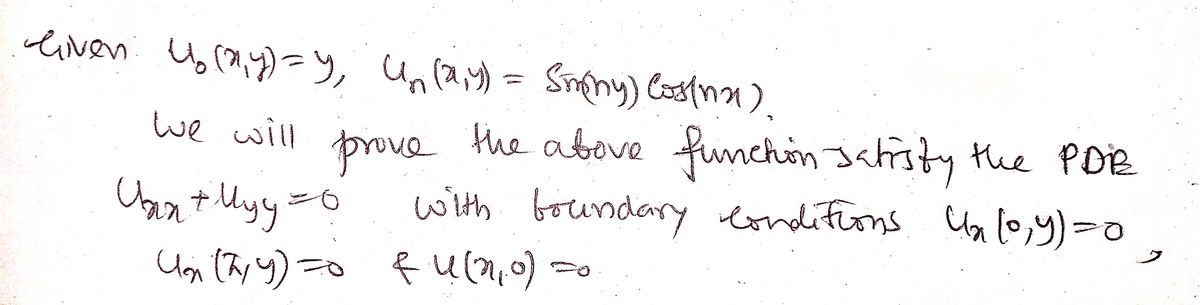 Given u₀(x,y)=y, uₙ(x,y) = Sin(ny) Cos(nx).
We will prove the above function satisfy the PDE
uₓₓ+u_yy=0 with boundary conditions uₓ(0,y)=0,
uₓ(π,y)=0 & u(x,0)=0